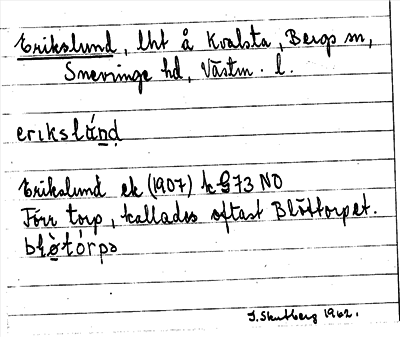 Erikslund, lht å Kvalsta, Bergs sn,
Snevringe hd, Västm. l.
erikslúṉḍ
Erikslund ek (1907) k G73 NO
Förr torp, kallades oftast Blöttorpet.
1962.